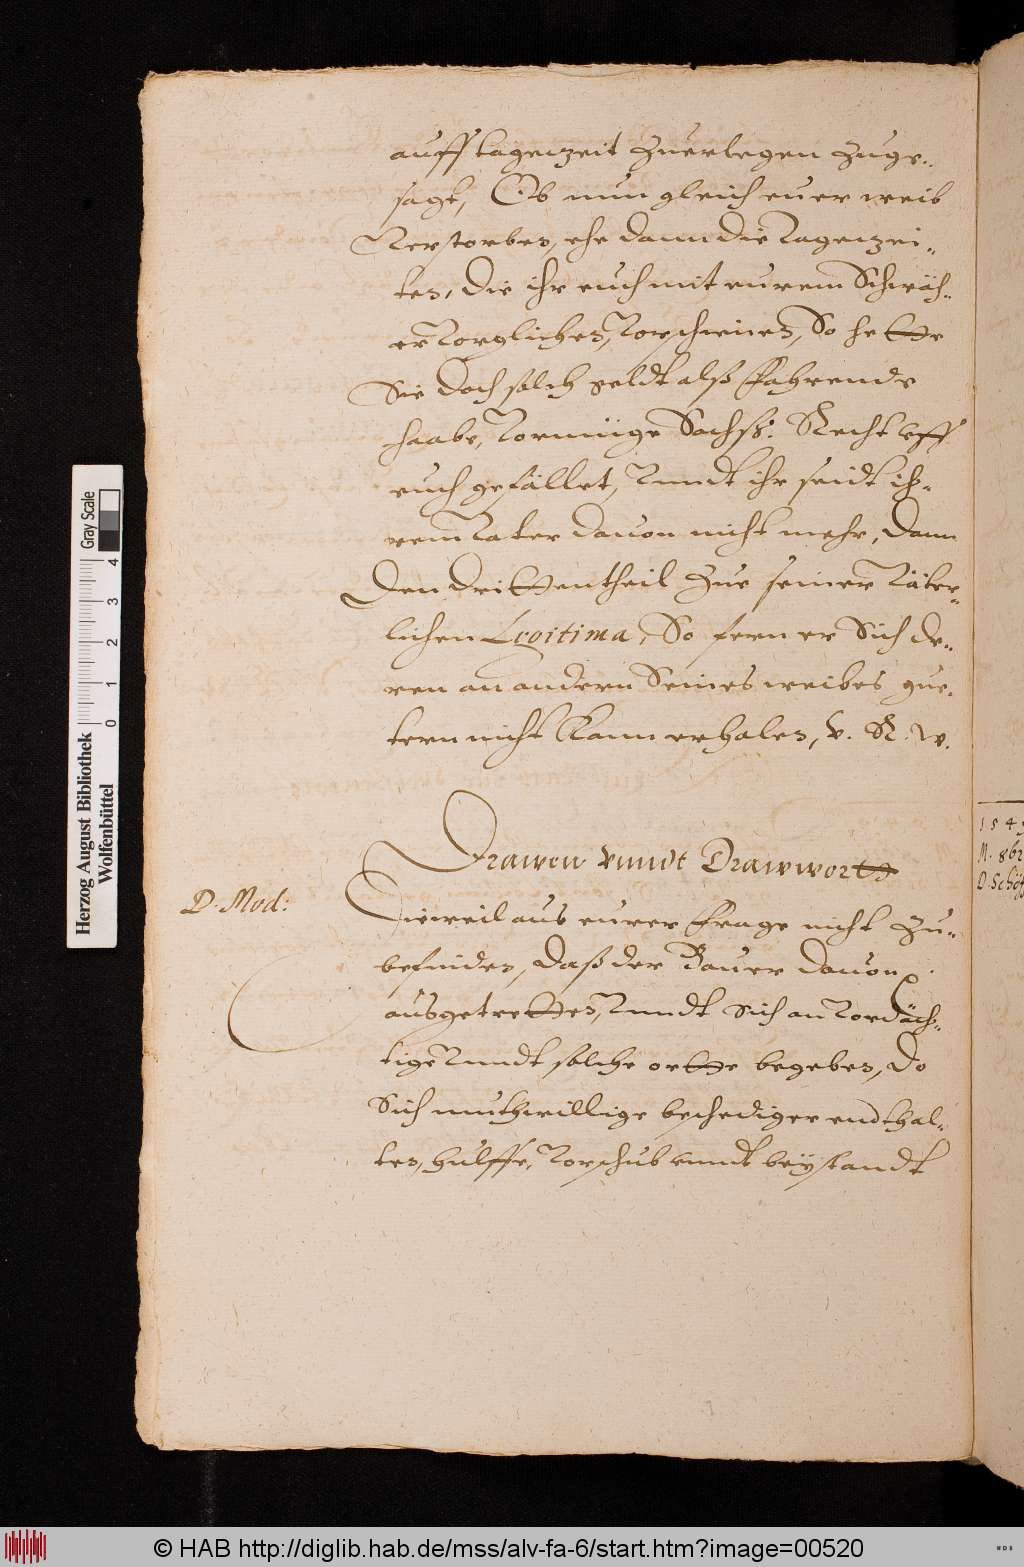 auff tagenzeit zuerlegen zuge-
sagt, Ob nun gleich euer weib
Verstorben, ehe dann die Tagenzei-
ten, die ihr euch mit eurem Schwäh-
er Vorglichen, Vorschienen, So hette
Sie doch solch geldt alß fahrende
haabe, Vormüge Sachß: Recht vff
euch gefället, Vnndt ihr seidt ih-
rem Vater dauon nicht mehr, dann
den drittentheil zue seiner Väter-
lichen Legitima, So fern er Sich de-
ren an andern Seines weibes gue-
tern nicht kann erholen, V. R. W.
Drawen vnndt Drawwortt
D. Mod:
Dieweil aus eurer frage nicht zu-
befinden, daß der Bauer dauon
ausgetretten, Vnndt Sich an Vordäch-
tige Vnndt solche ortte begeben, do
Sich muthwillige beschediger endthal-
ten, hulffe, Vorschub vnndt beÿstandt
154
M. 862
D. Schöf
Herzog August Bibliothek
Wolfenbüttel
Gray Scale
0 1 2 3 4
© HAB http://diglib.hab.de/mss/alv-fa-6/start.htm?image=00520
WDB